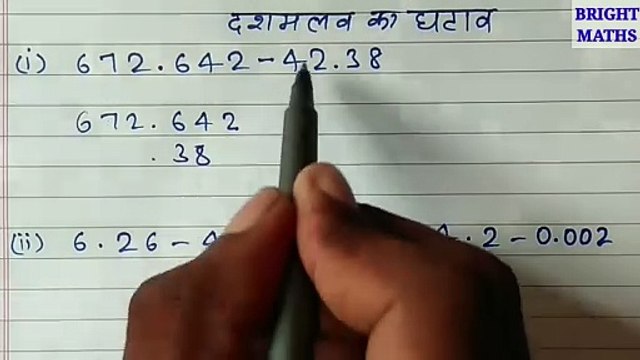 दशमलव का घटाव
BRIGHT MATHS
(i) 672.642-42.38
672.642
.38
(ii) 6.26-4 .2-0.002